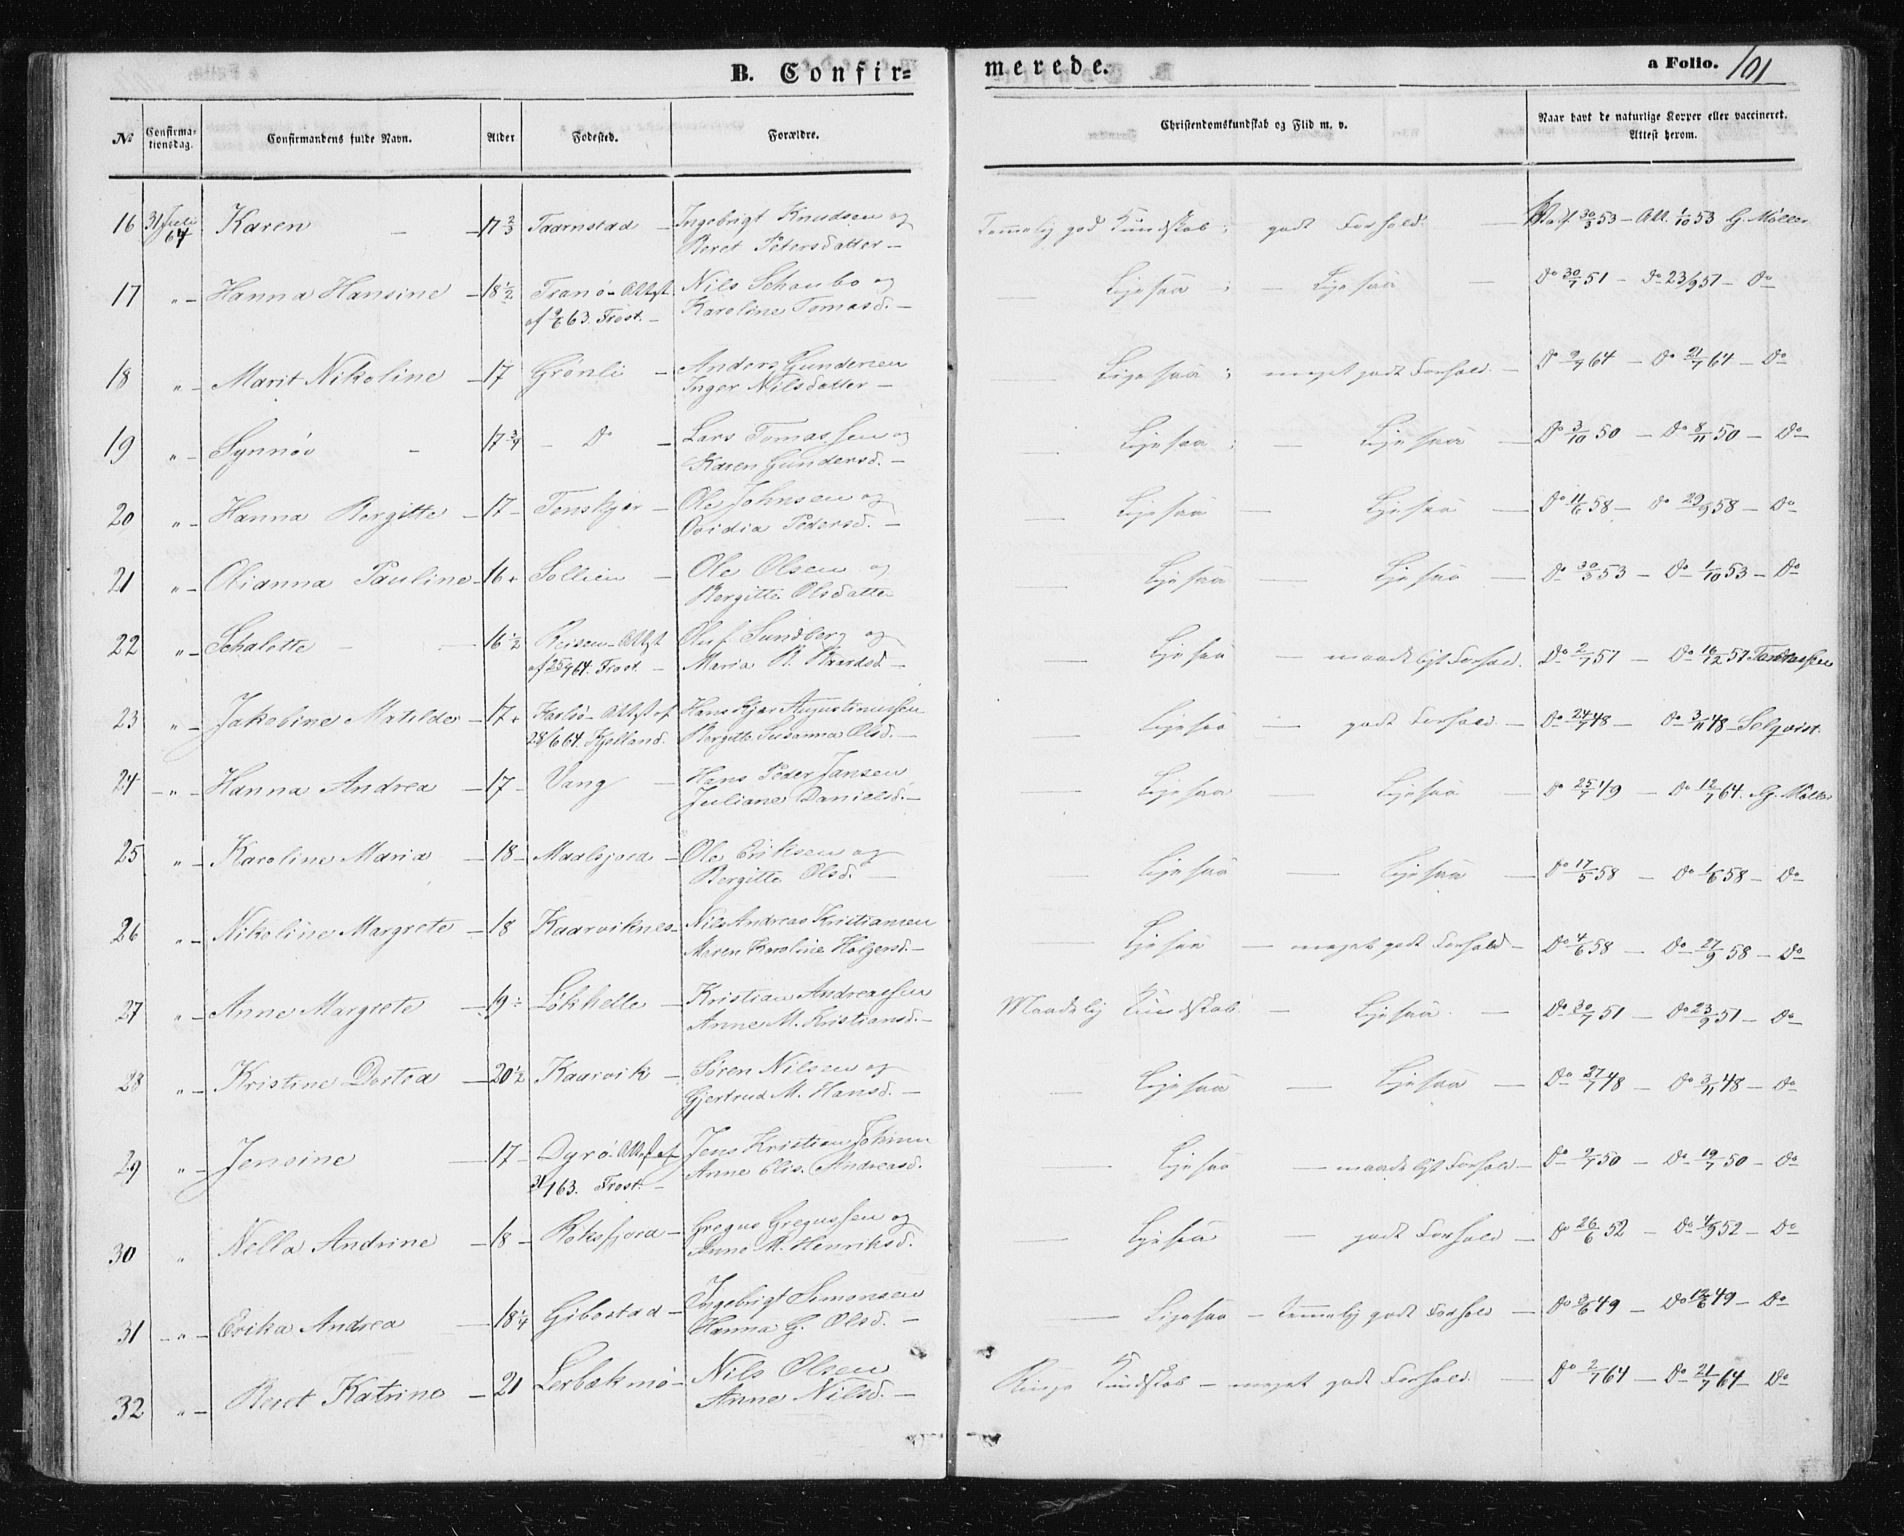 B. Confir=
merede.
a Folio. 101
№ Confirma-tionsdag. Confirmandens fulde Navn. Alder Fødested. Forældre. Christendomskundskab og Flid m. v. Naar havt de naturlige Kopper eller vaccineret. Attest herom.
16 31 Juli 64 Karen - 17 2/3 Taarnstad - Ingebrigt Knudsen og Beret Petersdatter - Temmelig god Kundskab; godt Forhold. - Vac. 30/3 53 - Att. 1/10 53 G. Møller
17 " - Hanna Hansine - 18 1/2 Tranø - Attest af 63. Frost. - Nils Schaubo og Karoline Tomasd. - - Ligesaa ; - Ligesaa - Do 30/7 51 - Do 23/9 51 - Do
18 " - Marit Nikoline - 17 Grønli - Anders Gundersen Inger Nilsdatter - - Ligesaa ; meget godt Forhold. - Do 2/7 64 - Do 21/7 64 - Do
19 " - Synnøv - 17 3/4 - Do - Lars Tomassen og Karen Gundersd. - - Ligesaa ; - Ligesaa - Do 3/10 50 - Do 8/11 50 - Do
20 " - Hanna Bergitte - 17 - Tenskjær - Ole Johnsen og Ovidia Pedersd. - - Ligesaa - Ligesaa - Do 11/6 58 - Do 29/9 58 - Do
21 " - Olianna Pauline - 16 + Sollien - Ole Olsen og Bergitte Olsdatte - Ligesaa - Ligesaa - Do 30/3 53 - Do 1/10 53 - Do
22 " - Schalotte - 16 1/2 Reisen - Attest af 25/9 64. Frost - Oluf Sundberg og Maria B. - - Ligesaa - maadeligt Forhold. Do 2/7 57 - Do 16/12 57
23 " - Jakobine Matilde - 17 + Karlsø - Attest af 28/6 64. Kjelland. Hans Kjær Augustinussen Bergitte Susanna Olsd. - - Ligesaa - godt Forhold - Do 24/7 48 - Do 3/11 48 - Selqvist.
24 - " - Hanna Andrea - 17 - Vang - Hans Peder Jansen Juliane Danielsd. - - Ligesaa - Ligesaa - Do 25/7 49 - Do 12/7 64. G. Møller
25 " - Karoline Maria - 18 - Maalsjord - Ole Eriksen og Bergitte Olsd. - - Ligesaa - Ligesaa - Do 17/5 58 - Do 1/6 58 - Do
26 " - Nikoline Margrete - 18 Kaarviknes - Nils Andreas Kristiansen Maren Karoline Holgersd. - - Ligesaa - meget godt Forhold - Do 4/6 58 - Do 27/9 58 - Do
27 " - Anne Margrete - 19 Løkhelle - Kristian Andreassen Anne M. Kristiansd. - Maadelig Kundskab - Ligesaa - Do 30/7 51 - Do 23/9 51 - Do
28 " - Kristine Dortea - 20 1/2 Kaarvik - Søren Nilsen og Gjertrud M. Hansd. - - Ligesaa - Ligesaa - Do 27/7 48 - Do 3/11 48 - Do
29 " - Jensine - 17 - Dyrø - Attest af 63. Frost. - Jens Kristian Anne Elis. Andreasd. - Ligesaa - maadeligt Forhold - Do 2/7 50 - Do 19/7 50 - Do
30 " Nella Andrine - 18 - Roksfjord - Gregus Gregussen og Anne M. Henriksd. - Ligesaa - godt Forhold - Do 26/6 52 - Do 4/9 52 - Do
31 - " - Erika Andrea - 18 1/4 Gibostad - Ingebrigt Simonsen Hanna G. Olsd. - - Ligesaa - temmelig godt Forhold - Do 49 - Do 49 - Do
32 " - Beret Katrine - 21 Lerbækmo - Nils Olsen Anne Nilsd. - Ringe Kundskab - meget godt Forhold - Do 2/7 64 - Do 21/7 64 - Do